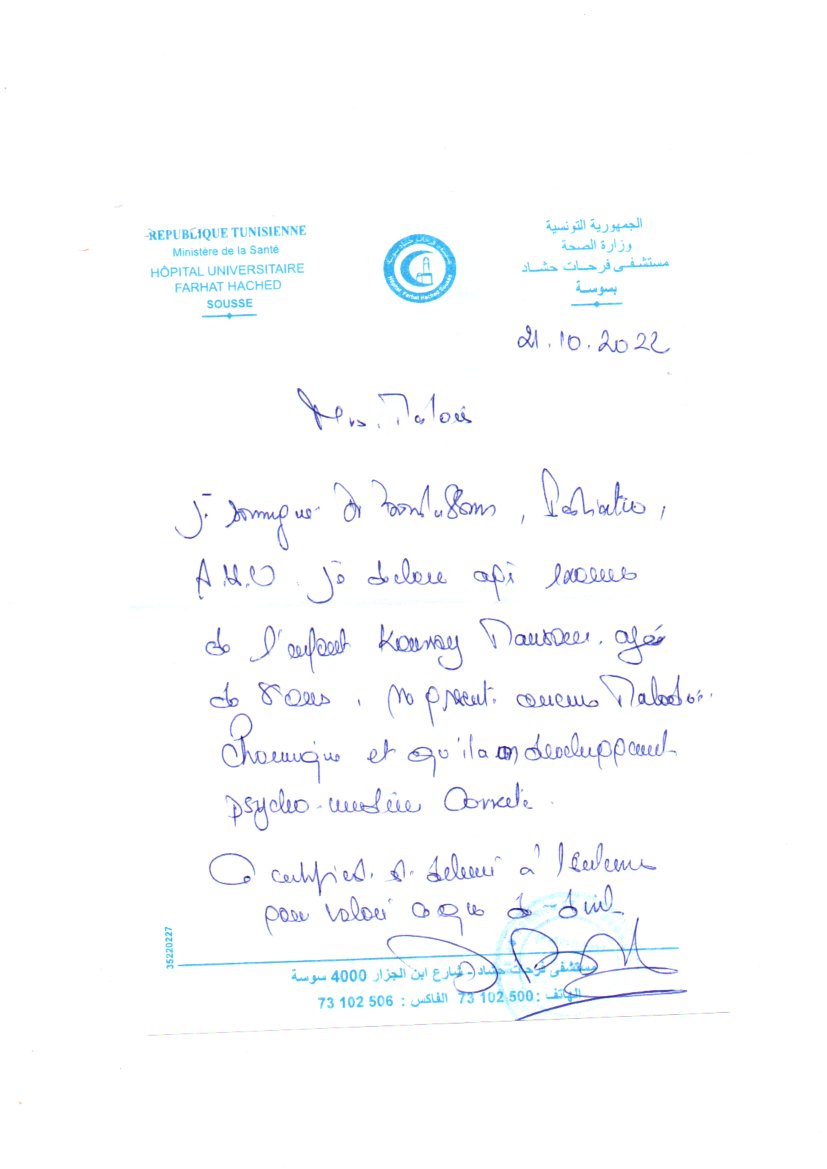 REPUBLIQUE TUNISIENNE
Ministère de la Santé
HÔPITAL UNIVERSITAIRE
FARHAT HACHED
SOUSSE
الجمهورية التونسية
وزارة الصحة
مستشفى فرحات حشاد
بسوسة
Hôpital Farhat Hached Sousse
21.10.2022
Je soussigné Dr, Pédiatre,
A.H.U. je déclare après examen
de l'enfant Mansour. agé
de 8 ans, ne présente aucune Maladie
Chronique et qu'il a un développement
psycho-moteur Correcte.
Ce certificat est délivré à
pour valoir ce que de droit
35220227
مستشفى فرحات حشاد - شارع ابن الجزار 4000 سوسة
الهاتف : 73 102 500 الفاكس : 73 102 506